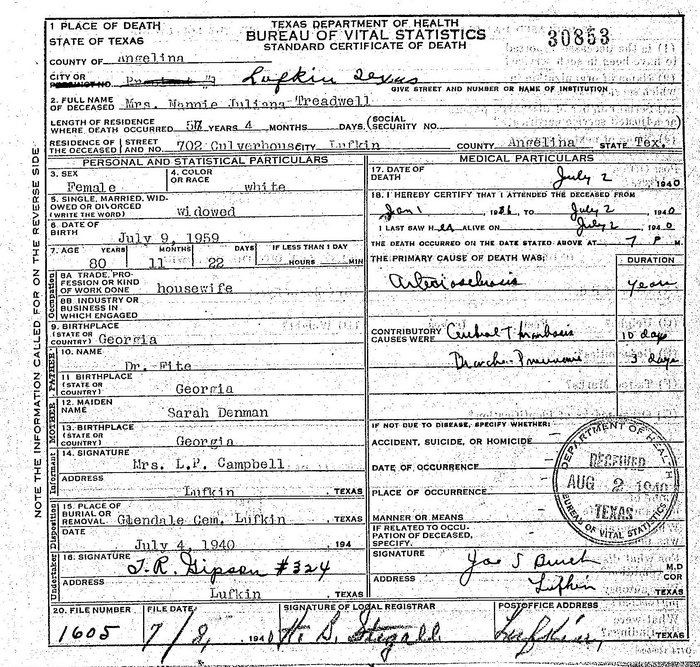 TEXAS DEPARTMENT OF HEALTH
BUREAU OF VITAL STATISTICS
STANDARD CERTIFICATE OF DEATH
30853
1 PLACE OF DEATH
STATE OF TEXAS
COUNTY OF Angelina
CITY OR PRECINCT NO. Lufkin Texas
GIVE STREET AND NUMBER OR NAME OF INSTITUTION
2. FULL NAME OF DECEASED Mrs. Nannie Juliana Treadwell
LENGTH OF RESIDENCE WHERE DEATH OCCURRED 57 YEARS 4 MONTHS DAYS. (SOCIAL SECURITY NO.
RESIDENCE OF THE DECEASED STREET AND NO. 702 Culverhouse CITY Lufkin COUNTY Angelina STATE Tex.
PERSONAL AND STATISTICAL PARTICULARS
3. SEX Female
4. COLOR OR RACE white
5. SINGLE, MARRIED, WIDOWED OR DIVORCED (WRITE THE WORD) Widowed
6. DATE OF BIRTH July 9, 1959
7. AGE YEARS MONTHS DAYS IF LESS THAN 1 DAY
80 11 22 HOURS MIN
Occupation
8A TRADE, PROFESSION OR KIND OF WORK DONE housewife
8B INDUSTRY OR BUSINESS IN WHICH ENGAGED
9. BIRTHPLACE (STATE OR COUNTRY) Georgia
FATHER
10. NAME Dr. Fite
11 BIRTHPLACE (STATE OR COUNTRY) Georgia
MOTHER
12. MAIDEN NAME Sarah Denman
13. BIRTHPLACE (STATE OR COUNTRY) Georgia
Informant
14. SIGNATURE Mrs. L.P. Campbell
ADDRESS Lufkin, TEXAS
Disposition
15. PLACE OF BURIAL OR REMOVAL Glendale Cem. Lufkin, TEXAS
DATE July 4, 1940, 194
Undertaker
16. SIGNATURE J.R. Gipson #324
ADDRESS Lufkin, TEXAS
MEDICAL PARTICULARS
17. DATE OF DEATH July 2 1940
18. I HEREBY CERTIFY THAT I ATTENDED THE DECEASED FROM
Jan 1, 1936, TO July 2, 1940
I LAST SAW HER ALIVE ON July 2 1940
THE DEATH OCCURRED ON THE DATE STATED ABOVE AT 7 P M.
THE PRIMARY CAUSE OF DEATH WAS: DURATION
Arteriosclerosis years
CONTRIBUTORY CAUSES WERE Cerebral Thrombosis 10 days
Broncho Pneumonia 3 days
IF NOT DUE TO DISEASE, SPECIFY WHETHER:
ACCIDENT, SUICIDE, OR HOMICIDE
DATE OF OCCURRENCE
PLACE OF OCCURRENCE
MANNER OR MEANS
IF RELATED TO OCCUPATION OF DECEASED, SPECIFY.
SIGNATURE M.D
ADDRESS Lufkin COR TEXAS
DEPARTMENT OF HEALTH
RECEIVED
AUG 2 1940
TEXAS
BUREAU OF VITAL STATISTICS
20. FILE NUMBER FILE DATE SIGNATURE OF LOCAL REGISTRAR POSTOFFICE ADDRESS
1605 1940 Lufkin,
NOTE THE INFORMATION CALLED FOR ON THE REVERSE SIDE